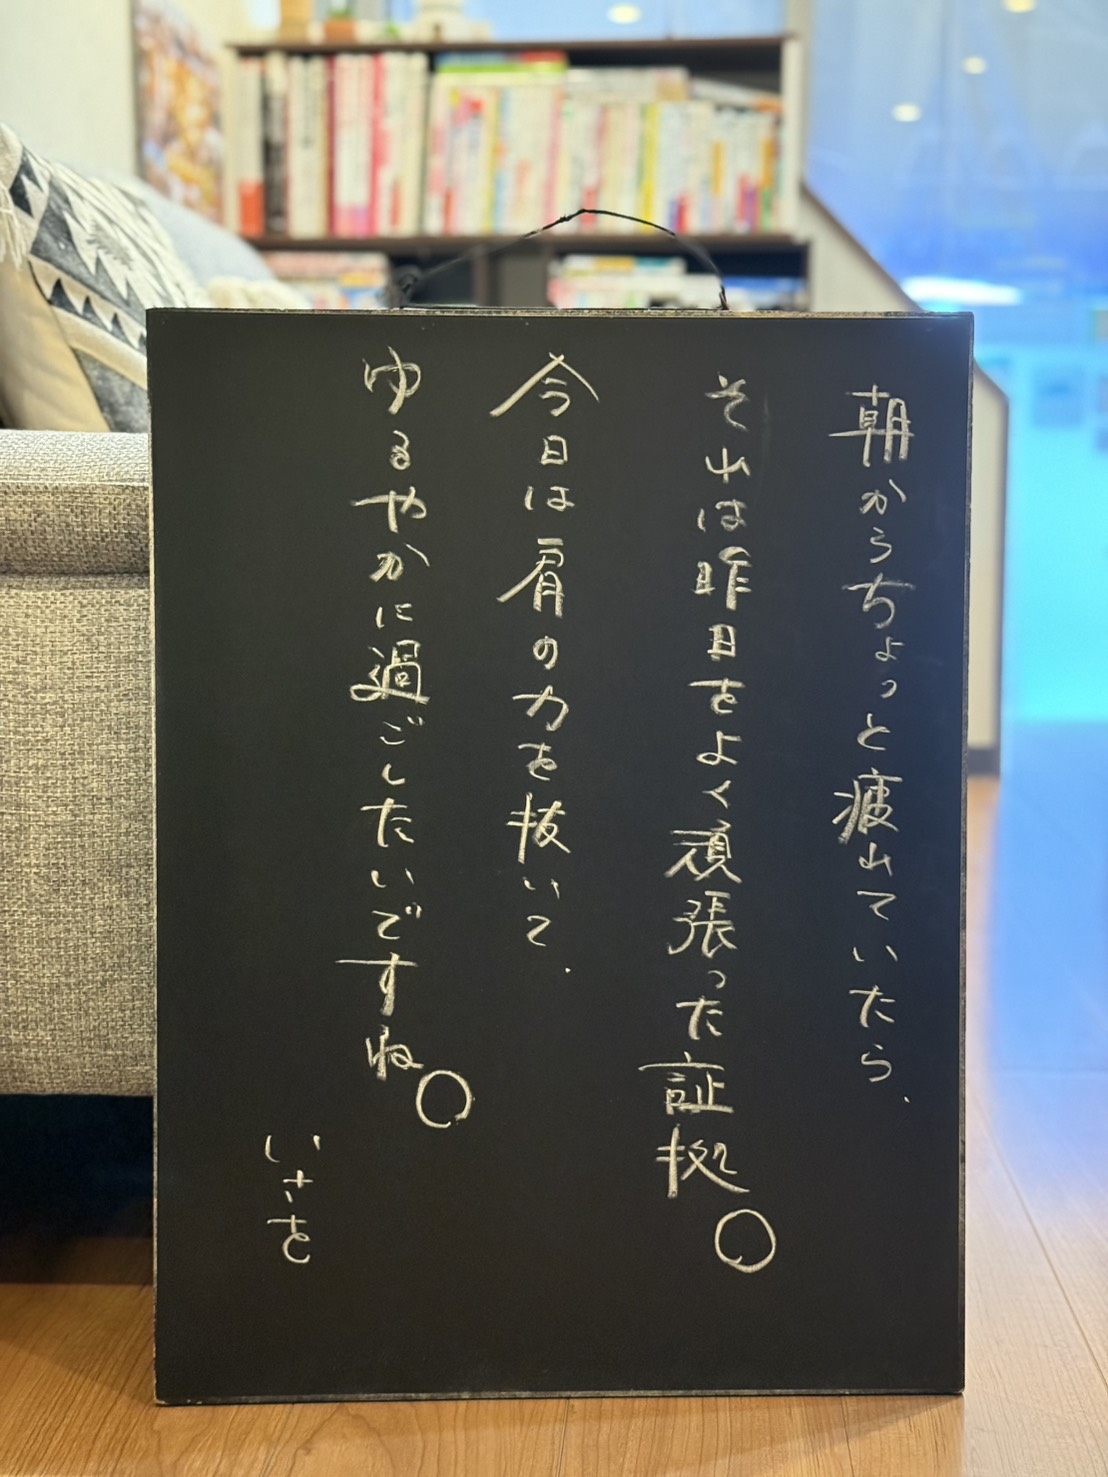 朝からちょっと疲れていたら、
それは昨日をよく頑張った証拠。
今日は肩の力を抜いて、
ゆるやかに過ごしたいですね。
いさを